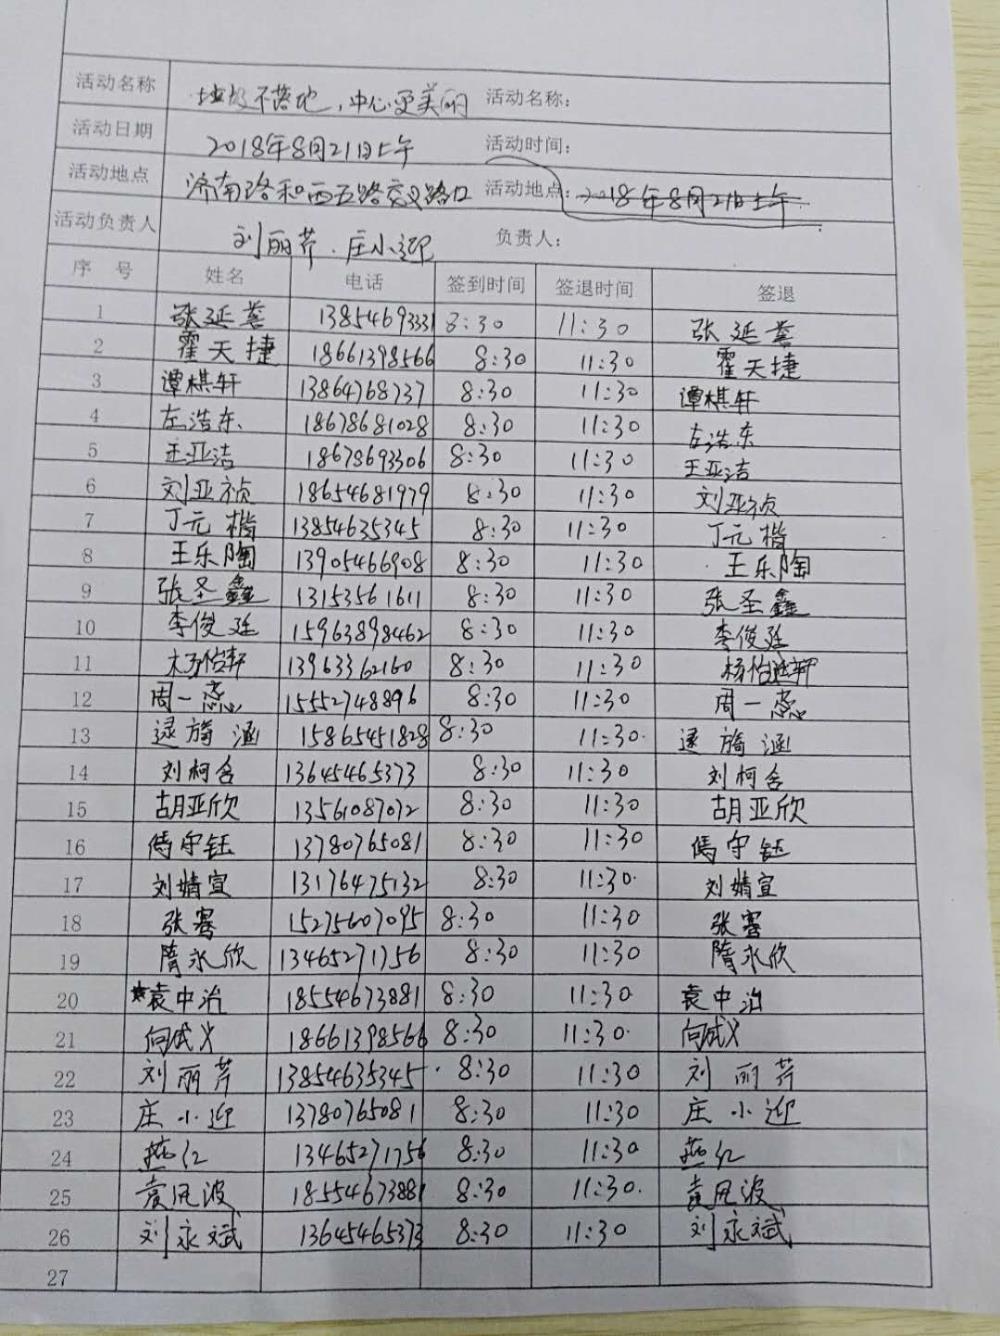 活动名称 垃圾不落地，中心更美丽 活动名称：
活动日期 2018年8月21日上午 活动时间：
活动地点 济南路和西五路交叉路口 活动地点：2018年8月21日上午
活动负责人 刘丽芹、庄小迎 负责人：
序号 姓名 电话 签到时间 签退时间 签退
1 张延 13854693331 8:30 11:30 张延
2 霍天捷 18661398566 8:30 11:30 霍天捷
3 谭棋轩 13864768737 8:30 11:30 谭棋轩
4 左浩东 18678681028 8:30 11:30 左浩东
5 王亚洁 18678693306 8:30 11:30 王亚洁
6 刘亚祯 18654681979 8:30 11:30 刘亚祯
7 丁元楷 13854635345 8:30 11:30 丁元楷
8 王乐陶 13905466908 8:30 11:30 王乐陶
9 张圣鑫 13153561611 8:30 11:30 张圣鑫
10 李俊廷 15963898462 8:30 11:30 李俊廷
11 杨怡轩 13963362160 8:30 11:30 杨怡轩
12 周一蕊 15552748896 8:30 11:30 周一蕊
13 逯旖涵 15865451828 8:30 11:30 逯旖涵
14 刘柯含 13645465373 8:30 11:30 刘柯含
15 胡亚欣 13561087072 8:30 11:30 胡亚欣
16 守钰 13780765081 8:30 11:30 守钰
17 刘婧宣 13176475132 8:30 11:30 刘婧宣
18 张骞 15275607095 8:30 11:30 张骞
19 隋永欣 13465271756 8:30 11:30 隋永欣
20 袁中治 18554673881 8:30 11:30 袁中治
21 向成义 18661398566 8:30 11:30 向成义
22 刘丽芹 13854635345 8:30 11:30 刘丽芹
23 庄小迎 13780765081 8:30 11:30 庄小迎
24 燕红 13465271756 8:30 11:30 燕红
25 袁凤波 18554673881 8:30 11:30 袁凤波
26 刘永斌 13645465373 8:30 11:30 刘永斌
27